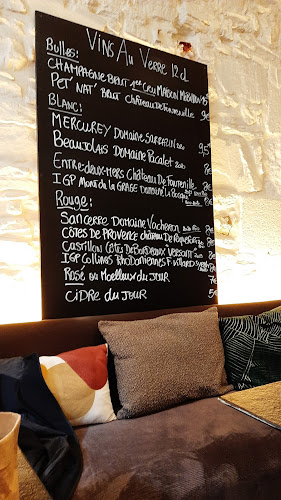 Vins Au Verre 12 cl
Bulles:
Champagne Brut 1er Cru Maison
Pet' Nat' Brut Château De Fontenille 9€
Blanc:
Mercurey Domaine Sarrazin 2020
Beaujolais Domaine Pacalet 9,5€
Entre-deux-Mers Château De Fontenille 8€
IGP Mont de la Grage Domaine la
Rouge:
Sancerre Domaine Vacheron
Côtes de Provence château De Roquefort
Castillon Côtes De Bordeaux Versant 8€
IGP Collines Rhodaniennes F. Villard Syrah 8€
Rosé ou Moelleux du Jour 7€
Cidre du Jour 5€